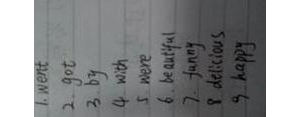 1. went
2. got
3 by
4. with
5 were
6. beautiful
7. funny
8 delicious
9. happy